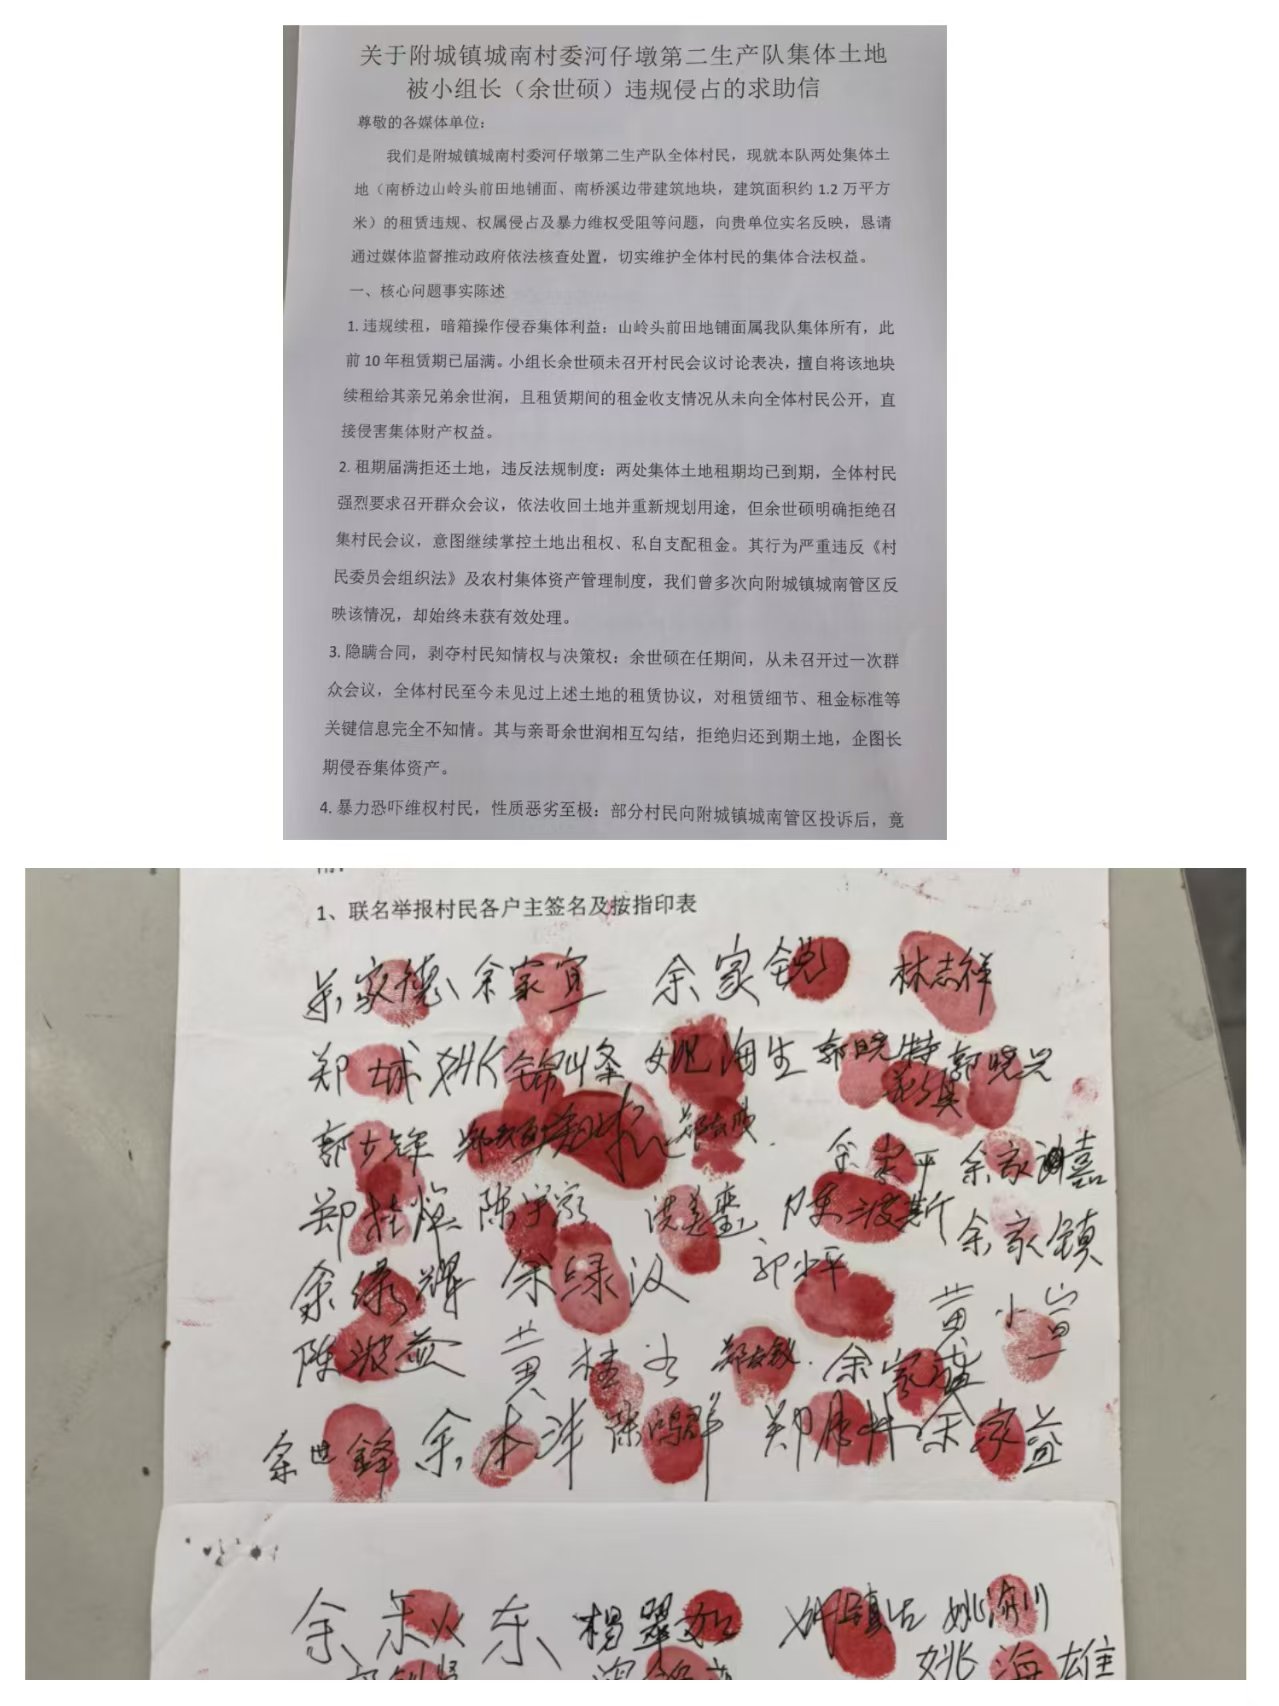 关于附城镇城南村委河仔墩第二生产队集体土地
被小组长（余世硕）违规侵占的求助信
尊敬的各媒体单位：
我们是附城镇城南村委河仔墩第二生产队全体村民，现就本队两处集体土
地（南桥边山岭头前田地铺面、南桥溪边带建筑地块，建筑面积约 1.2 万平方
米）的租赁违规、权属侵占及暴力维权受阻等问题，向贵单位实名反映，恳请
通过媒体监督推动政府依法核查处置，切实维护全体村民的集体合法权益。
一、核心问题事实陈述
1. 违规续租，暗箱操作侵吞集体利益：山岭头前田地铺面属我队集体所有，此
前 10 年租赁期已届满。小组长余世硕未召开村民会议讨论表决，擅自将该地块
续租给其亲兄弟余世润，且租赁期间的租金收支情况从未向全体村民公开，直
接侵害集体财产权益。
2. 租期届满拒还土地，违反法规制度：两处集体土地租期均已到期，全体村民
强烈要求召开群众会议，依法收回土地并重新规划用途，但余世硕明确拒绝召
集村民会议，意图继续掌控土地出租权、私自支配租金。其行为严重违反《村
民委员会组织法》及农村集体资产管理制度，我们曾多次向附城镇城南管区反
映该情况，却始终未获有效处理。
3. 隐瞒合同，剥夺村民知情权与决策权：余世硕在任期间，从未召开过一次群
众会议，全体村民至今未见过上述土地的租赁协议，对租赁细节、租金标准等
关键信息完全不知情。其与亲哥余世润相互勾结，拒绝归还到期土地，企图长
期侵吞集体资产。
4. 暴力恐吓维权村民，性质恶劣至极：部分村民向附城镇城南管区投诉后，竟
1、联名举报村民各户主签名及按指印表
余家德 余家宜 余家锐 林志祥
郑城 姚海生 郭晓特 郭晓兴
余家平
陈波斯 余家镇
余绿辉 余绿汉 郭小平
陈波益 黄小宣
余家盛
余世锋 余本洋 陈鸣群 余家益
杨翠如
姚海雄